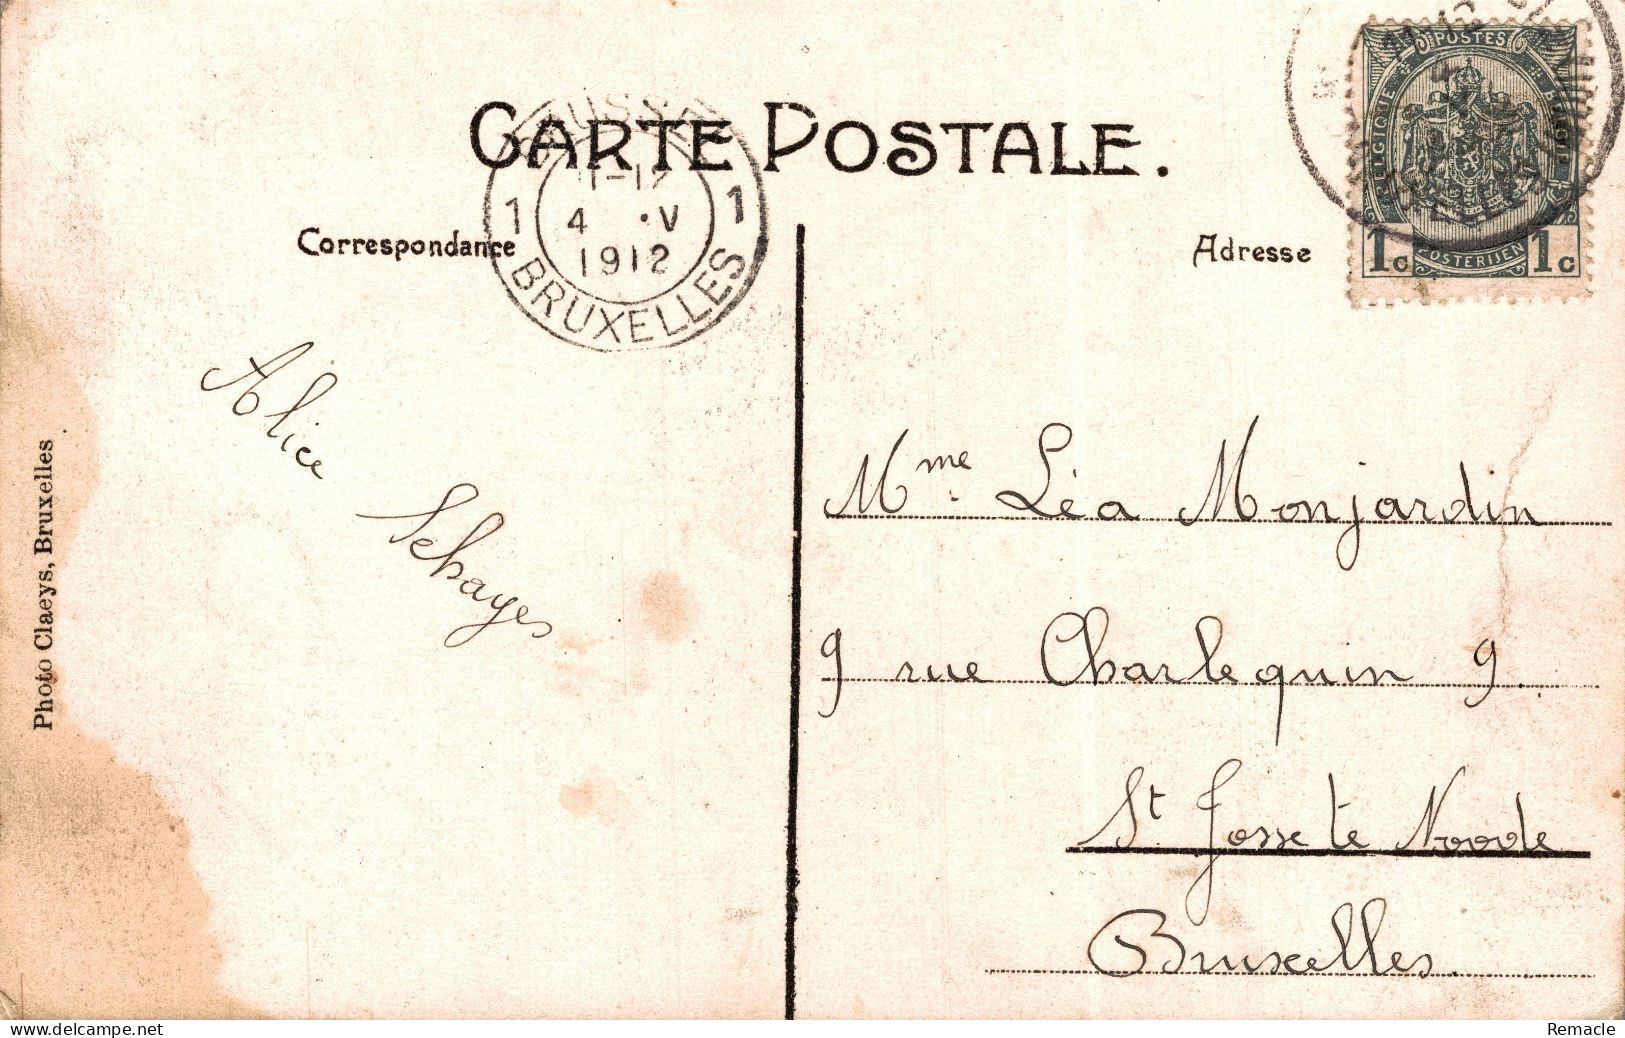 CARTE POSTALE.
Correspondance
Adresse
BRUSSEL
1 11-12 1
4 ·V
1912
BRUXELLES
POSTES
BELGIQUE
BELGIË
POSTERIJEN
1c 1c
Alice Sehayes
Mme. Léa Monjardin
9 rue Charlequin 9.
St. Josse te Noode
Bruxelles.
Photo Claeys, Bruxelles
www.delcampe.net
Remacle